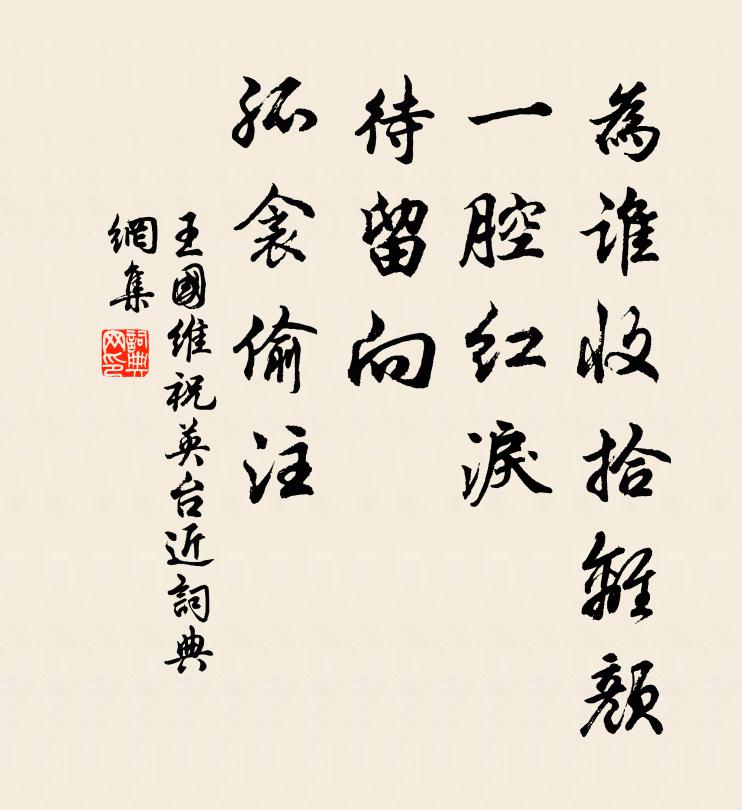 為誰收拾離顏
一腔紅淚
待留向
孤衾偷注
王國維祝英台近詞典
網集
詞典
网印